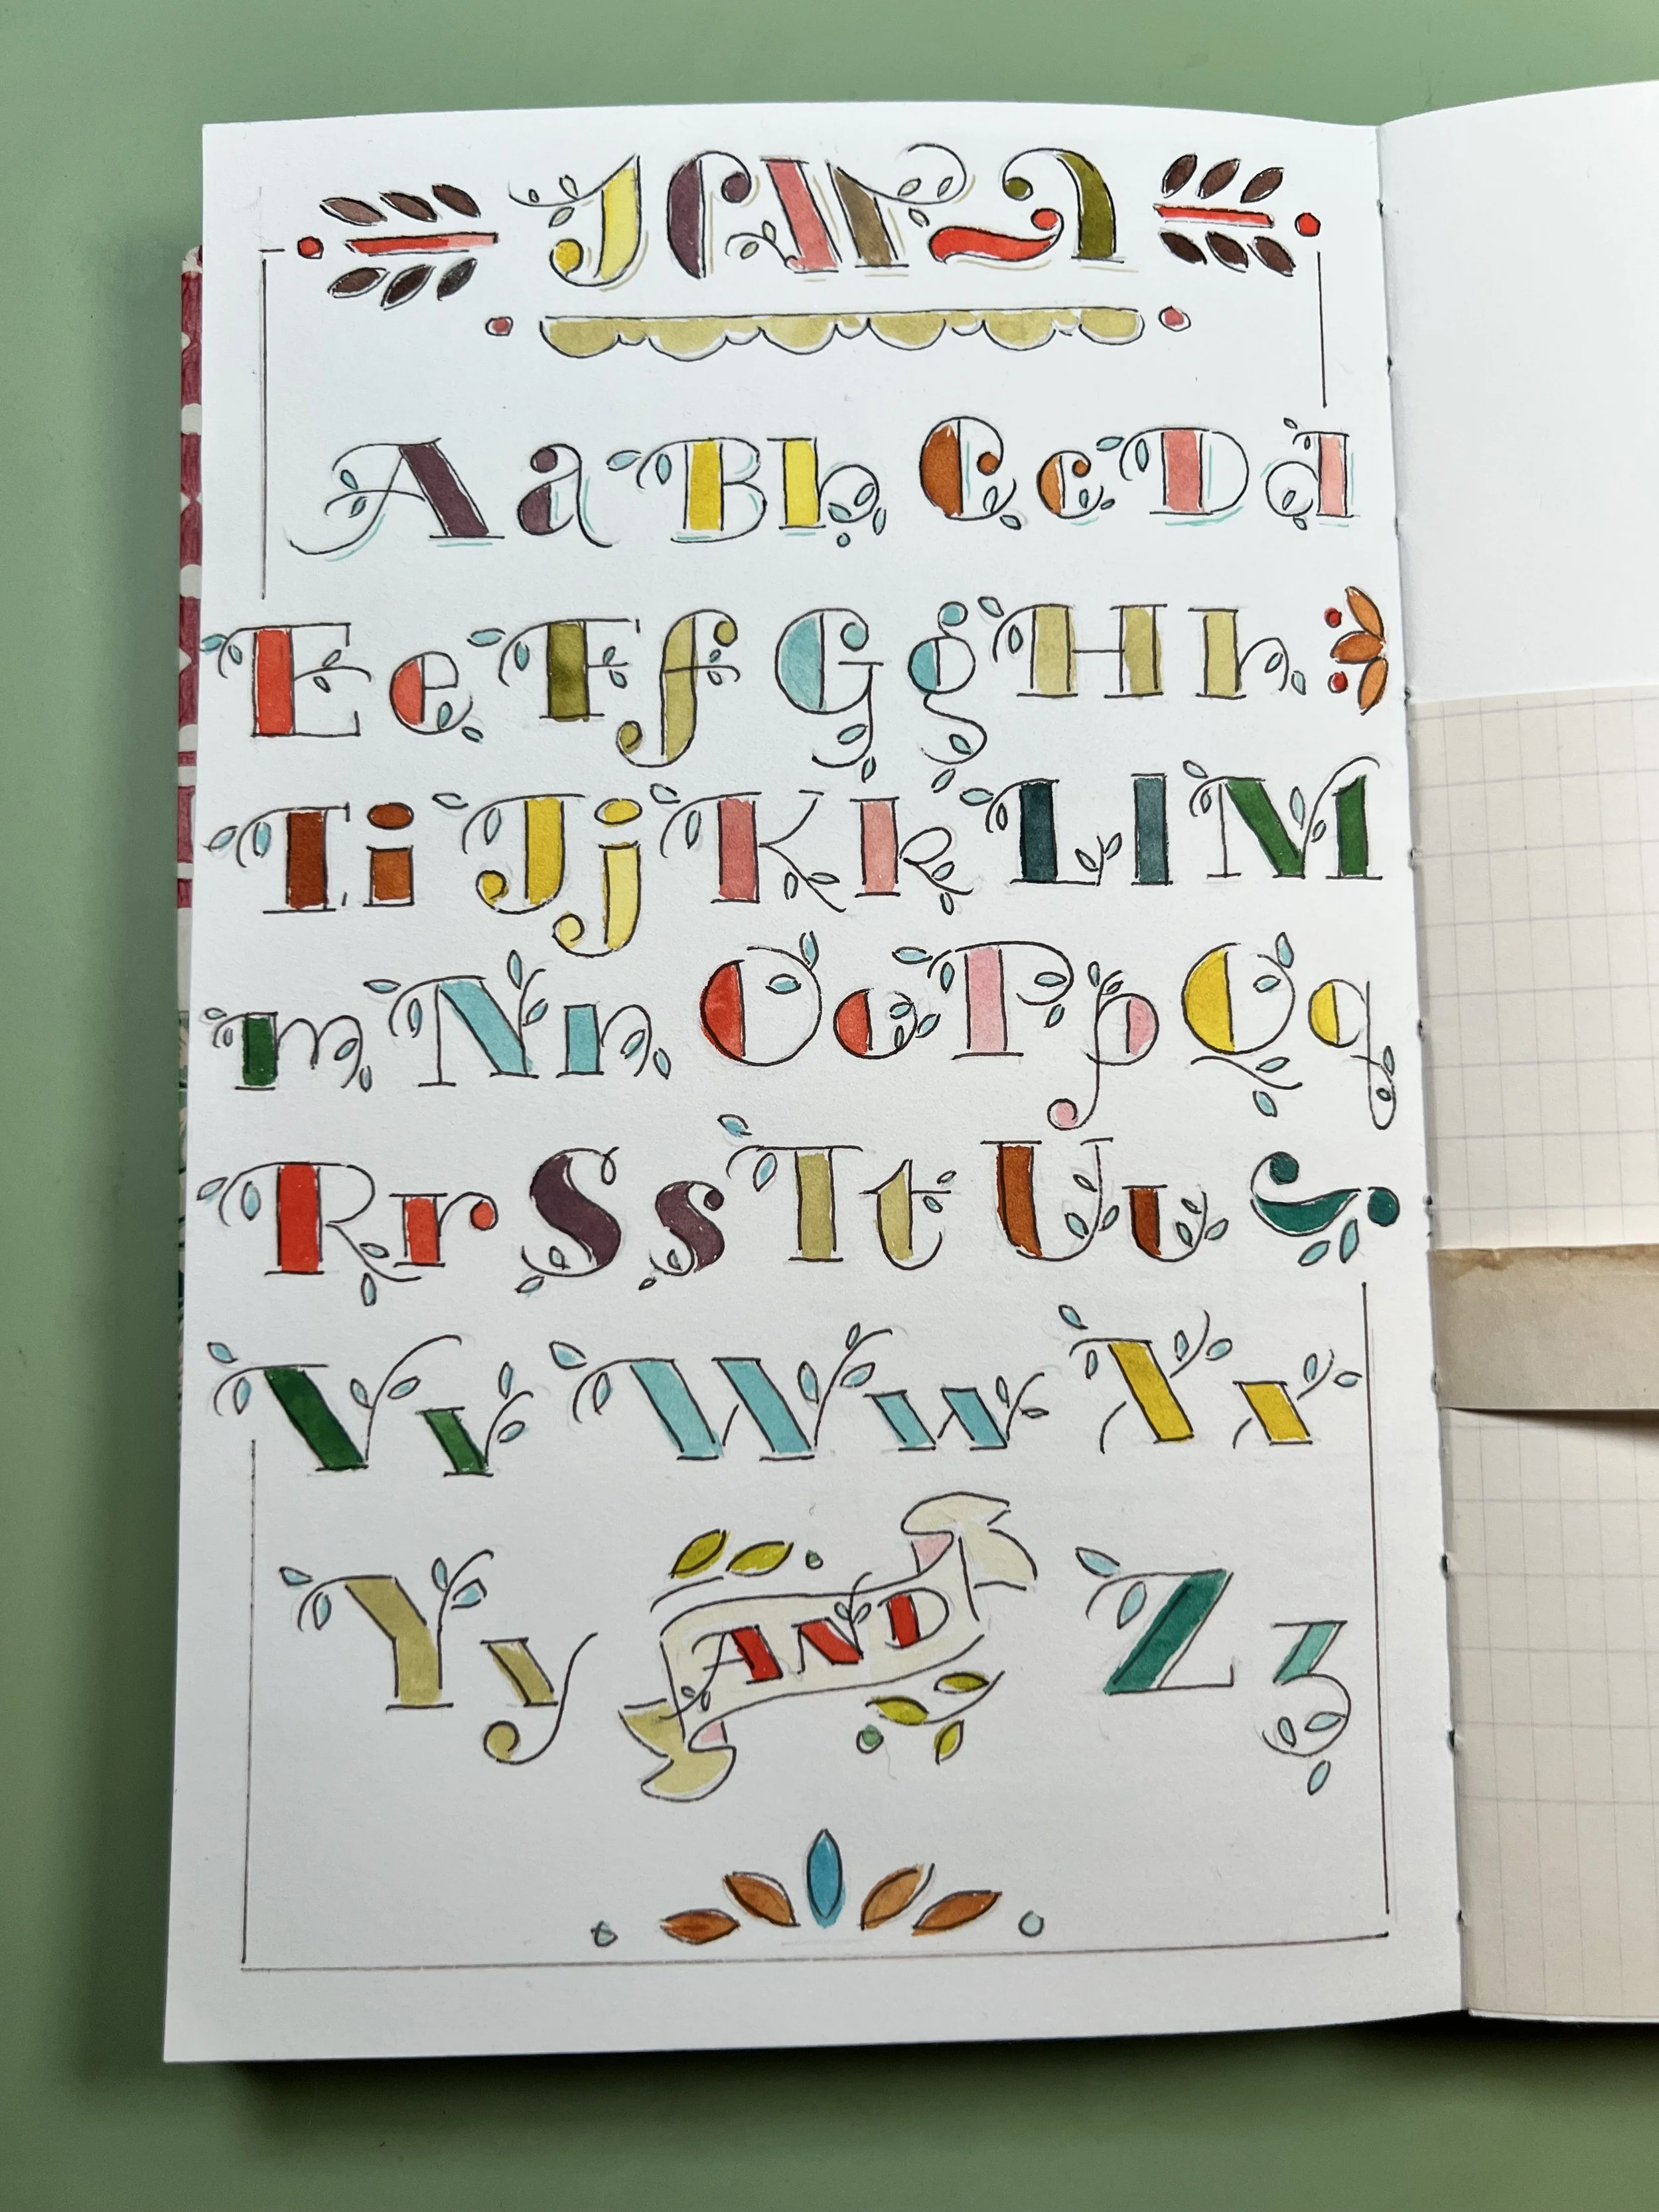 Aa Bb Cc Dd
Ee Ff Gg Hh
Ii Jj Kk Ll M
m Nn Oo Pp Qq
Rr Ss Tt Uu
Vv Ww Xx
Yy AND Zz